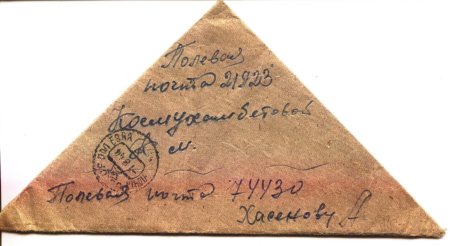 Полевая
почта 21923
Космухамбетовой
см.
Полевая почта 74430
Хасенову А